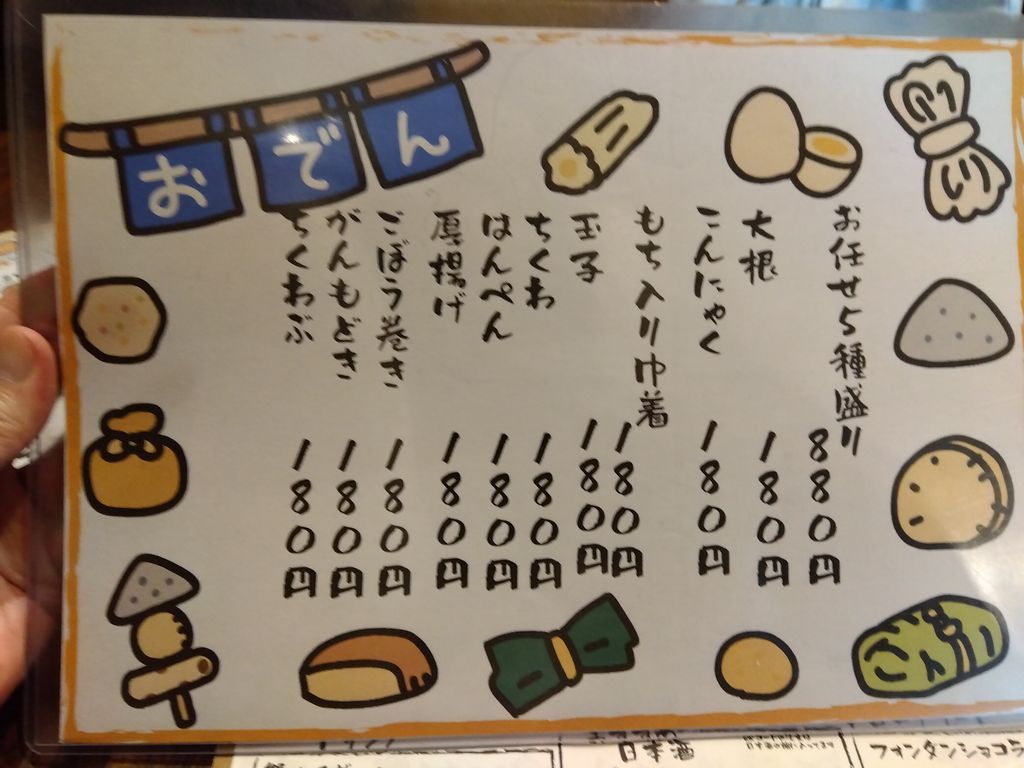 おでん
お任せ5種盛り 880円
大根 180円
こんにゃく 180円
もち入り巾着 180円
玉子 180円
ちくわ 180円
はんぺん 180円
厚揚げ 180円
ごぼう巻き 180円
がんもどき 180円
ちくわぶ 180円
日本酒
フォンダンショコラ